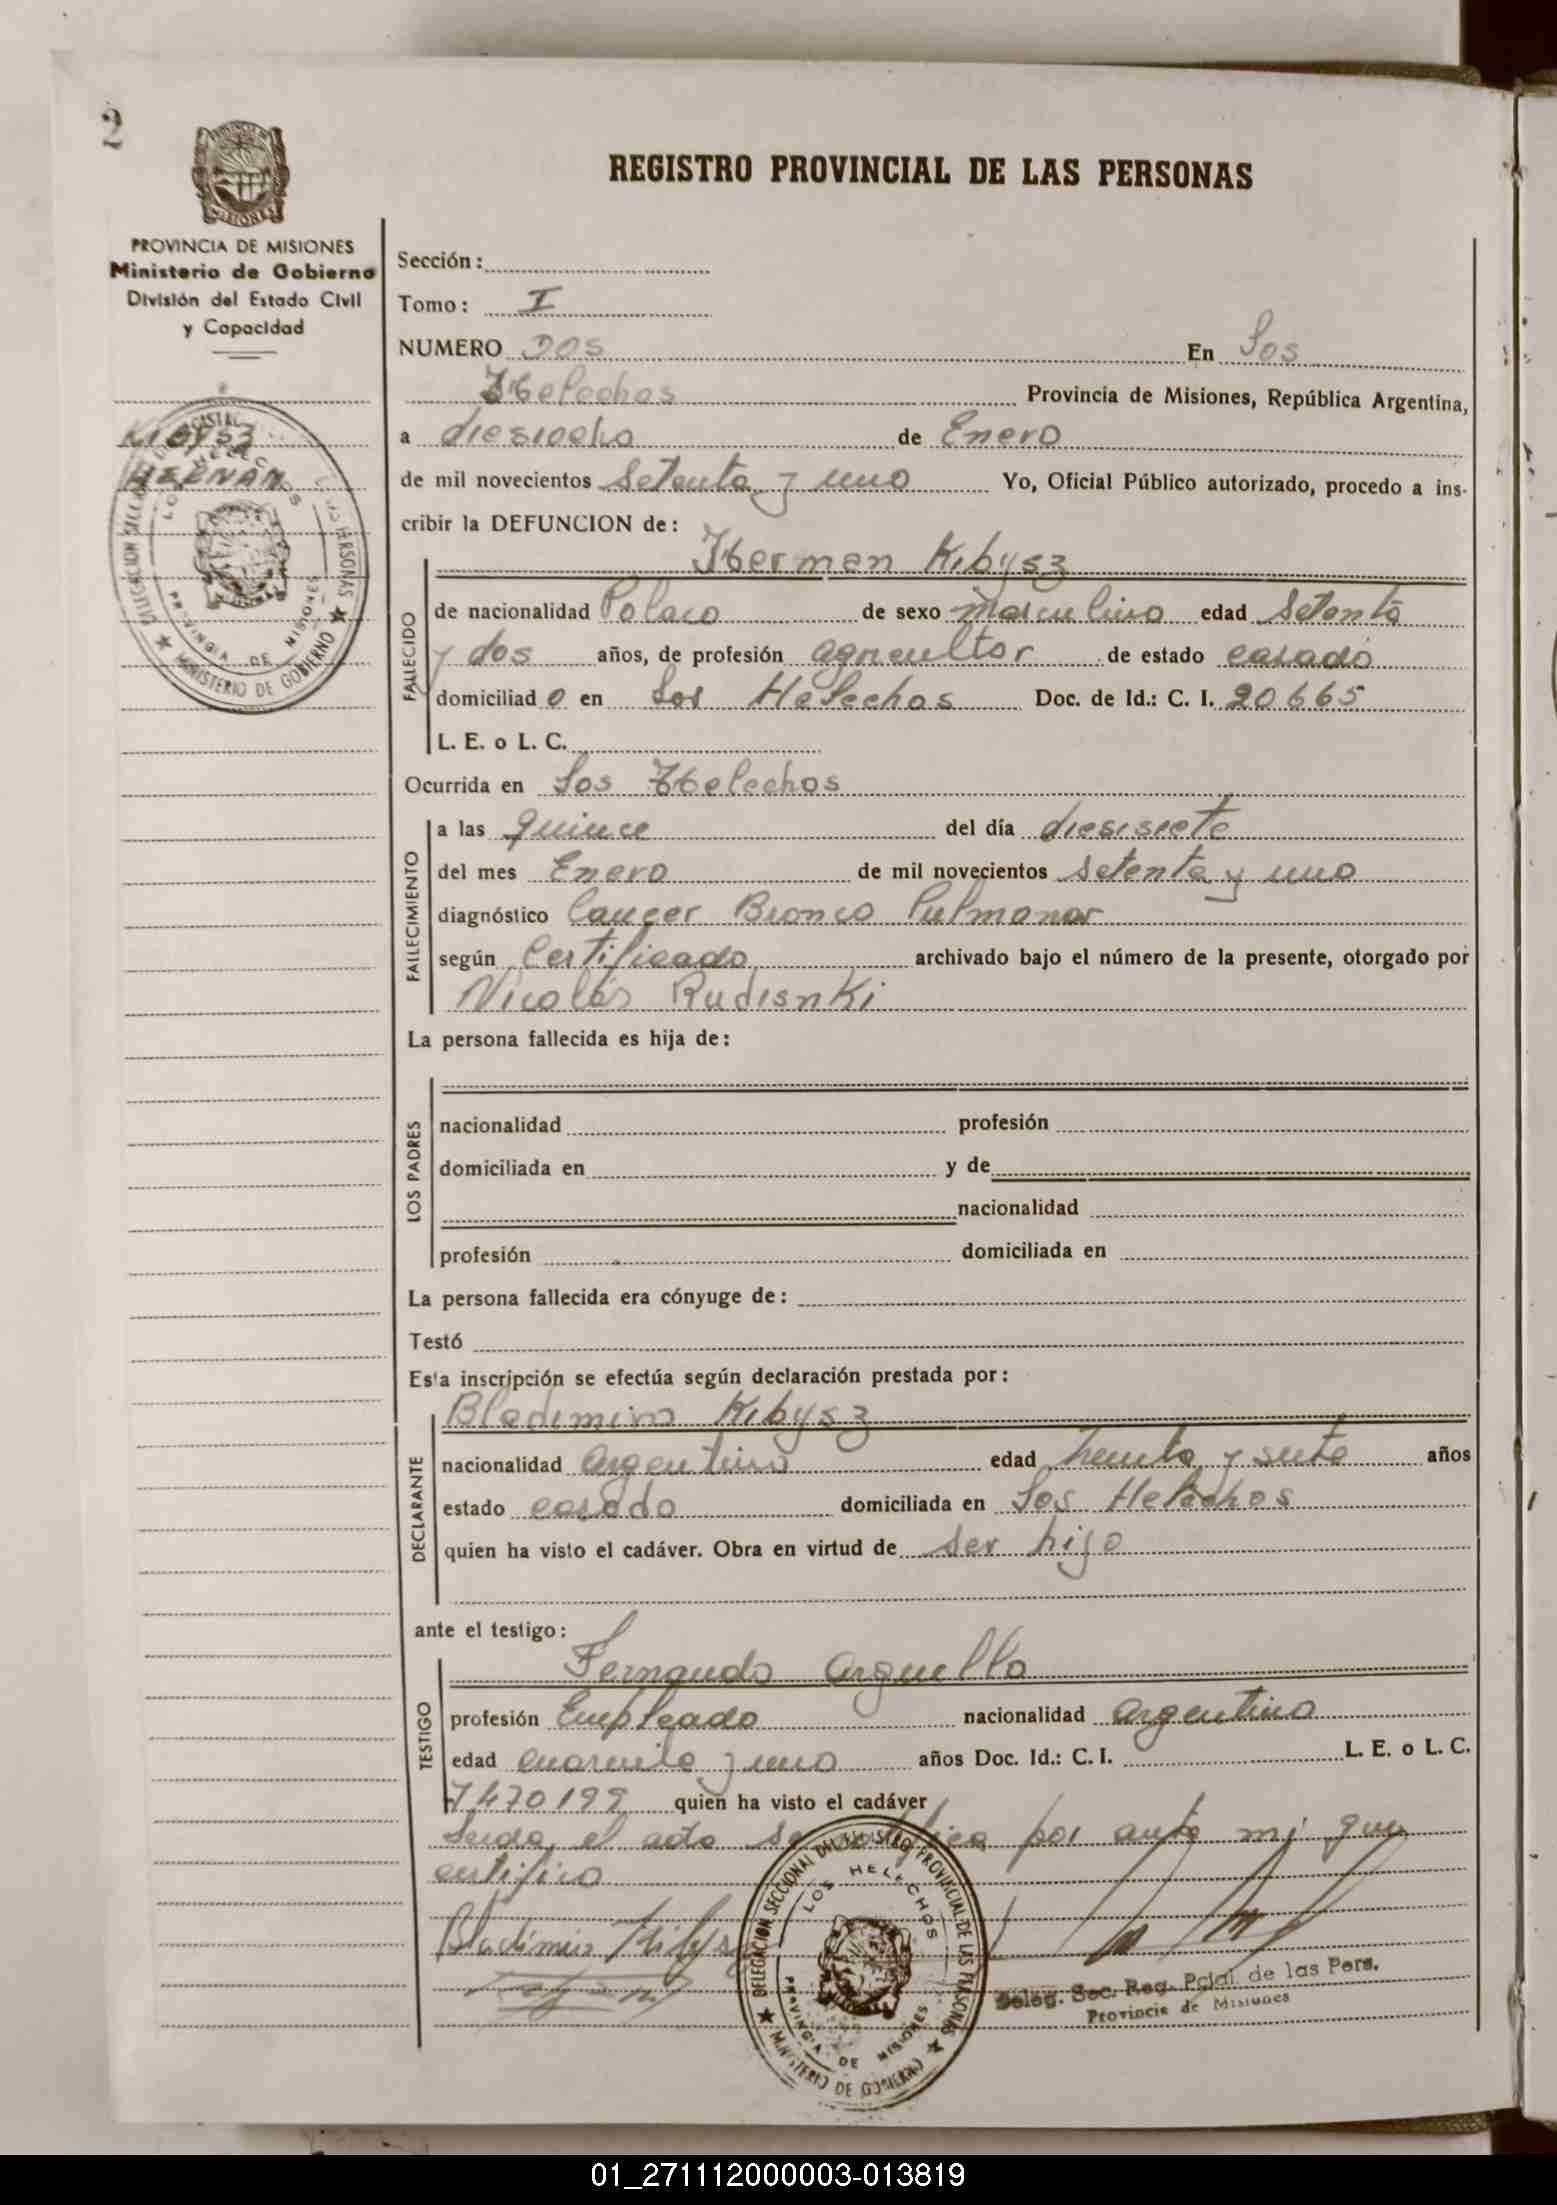 2
PROVINCIA DE MISIONES
Ministerio de Gobierno
División del Estado Civil
y Capacidad
KIBYSZ
HERNAN
REGISTRO PROVINCIAL DE LAS PERSONAS
Sección:
Tomo: I
NUMERO DOS En Los
Helechos Provincia de Misiones, República Argentina,
a diesiocho de Enero
de mil novecientos Setenta y uno Yo, Oficial Público autorizado, procedo a ins-
cribir la DEFUNCION de:
Herman Kibysz
FALLECIDO
de nacionalidad Polaco de sexo masculino edad Setenta
y dos años, de profesión agricultor de estado casado
domiciliad o en Los Helechos Doc. de Id.: C. I. 20665
L. E. o L. C.
Ocurrida en Los Helechos
FALLECIMIENTO
a las quince del día diesisiete
del mes Enero de mil novecientos setenta y uno
diagnóstico Cancer Bronco Pulmonar
según Certificado archivado bajo el número de la presente, otorgado por
Nicolás Rudisnki
La persona fallecida es hija de:
LOS PADRES
nacionalidad profesión
domiciliada en y de
nacionalidad
profesión domiciliada en
La persona fallecida era cónyuge de:
Testó
Esta inscripción se efectúa según declaración prestada por:
DECLARANTE
Bladimiro Kibysz
nacionalidad argentino edad treinta y siete años
estado casado domiciliada en Los Helechos
quien ha visto el cadáver. Obra en virtud de ser hijo
ante el testigo:
TESTIGO
Fernando Arguello
profesión Empleado nacionalidad argentino
edad cuarenta y uno años Doc. Id.: C. I. L. E. o L. C.
7470199 quien ha visto el cadáver
Leida el acta se por ante mi que
certifico
Bladimiro Kibysz
DELEGACION SECCIONAL DEL REGISTRO PROVINCIAL DE LAS PERSONAS
LOS HELECHOS
PROVINCIA DE MISIONES
MINISTERIO DE GOBIERNO
Deleg. Sec. Reg. Pcial. de las Pers.
Provincia de Misiones
01_271112000003-013819